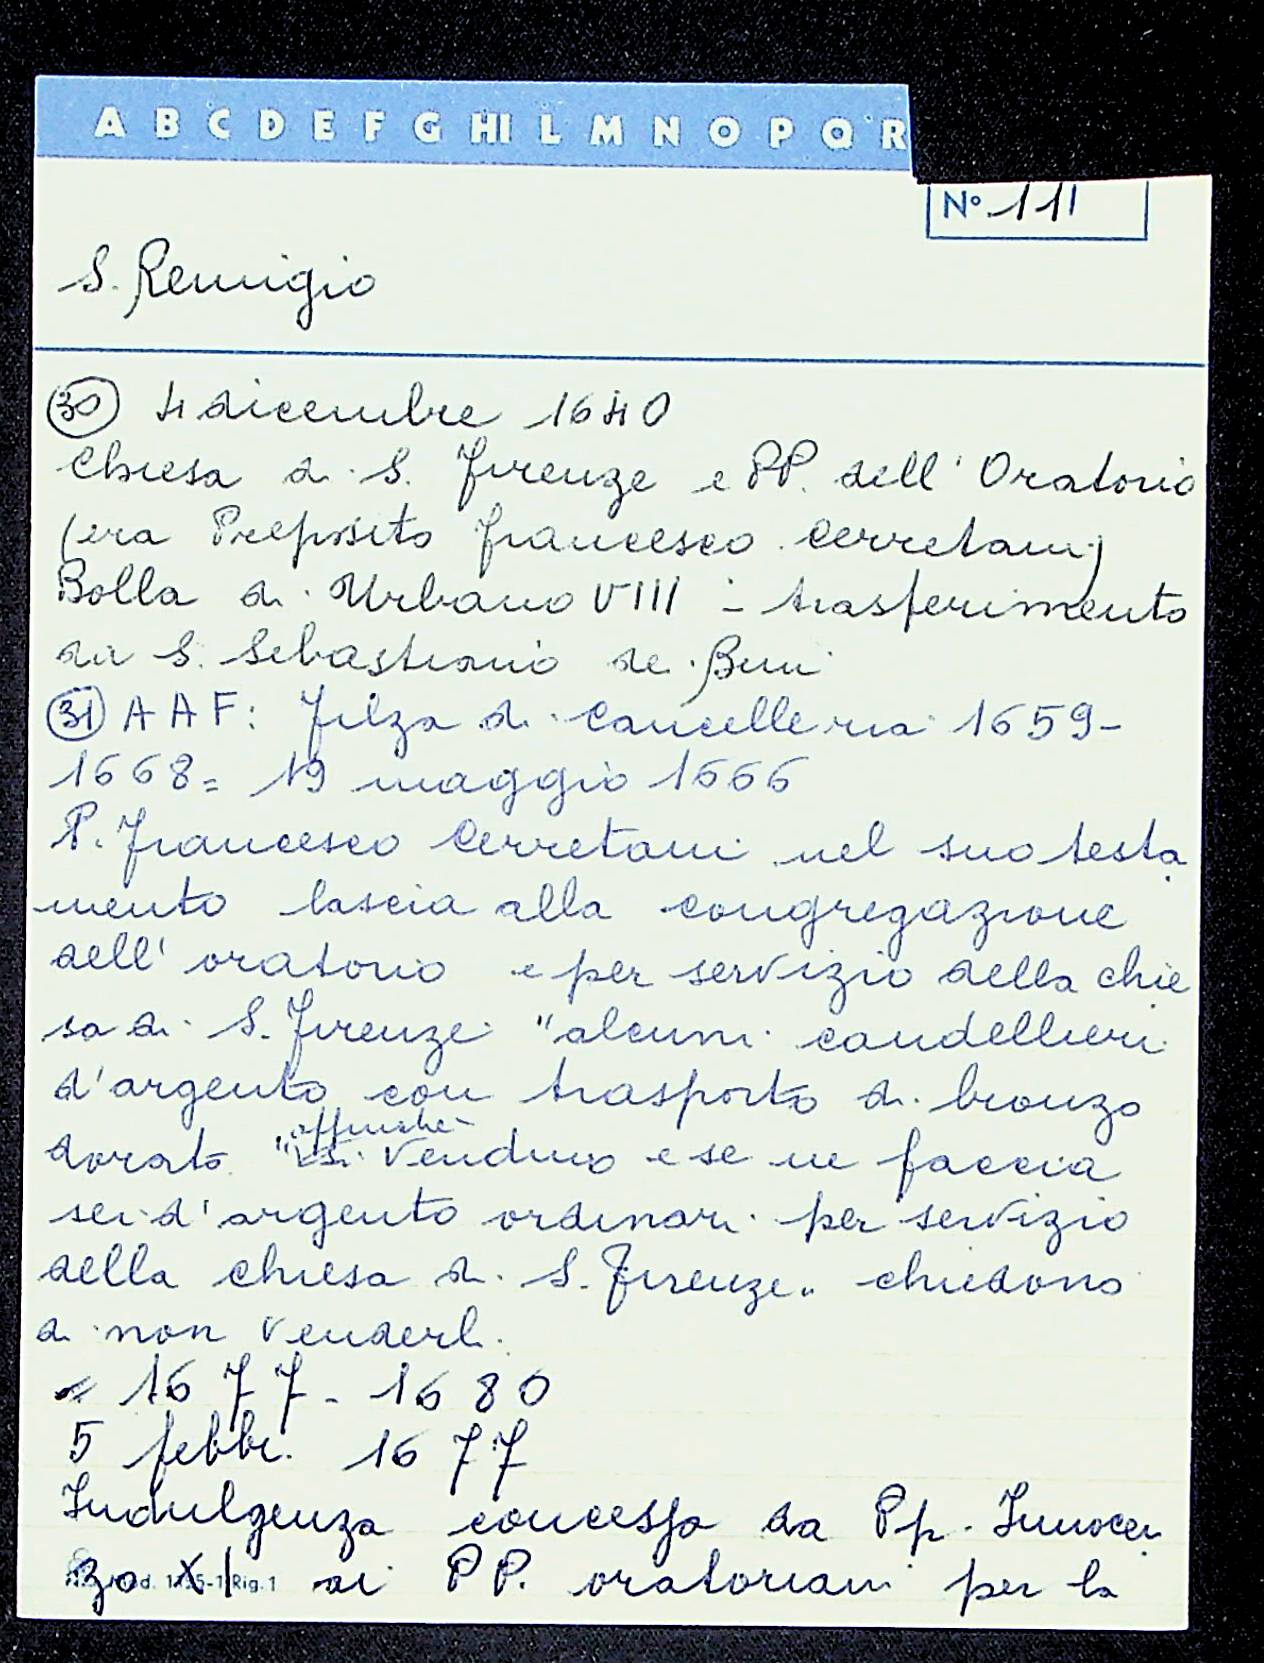 A B C D E F G HI L M N O P Q R
N° 111
S. Remigio
(30) 4 dicembre 1640
Chiesa di S. Firenze e PP. dell'Oratorio
(era Preposito Francesco Cerretani)
Bolla di Urbano VIII - trasferimento
da S. Sebastiano de Bini
(31) A A F: Filza di Cancelleria 1659-
1668= 19 maggio 1666
P. Francesco Cerretani nel suo testa
mento lascia alla congregazione
dell'oratorio e per servizio della chie
sa di S. Firenze "alcuni candellieri
d'argento con trasporto di bronzo
dorato "affinché
si vendino e se ne faccia
sei d'argento ordinari per servizio
della chiesa di S. Firenze" chiedono
di non venderli.
= 1677-1680
5 febbr. 1677
Indulgenza concessa da Pp. Innocen
zo XI ai PP. oratoriani per la
Rig. 1